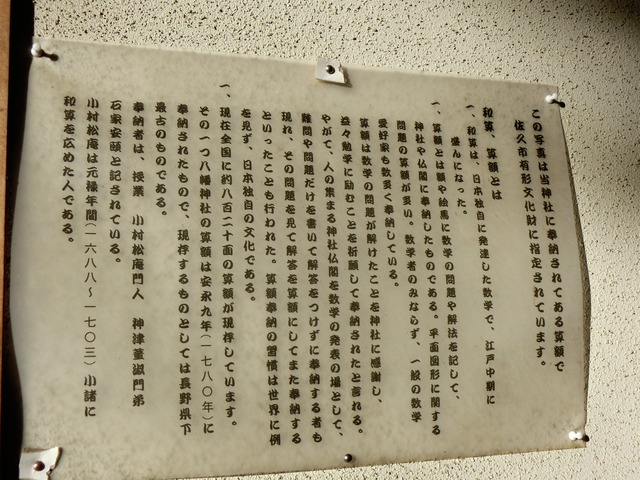 この写真は当神社に奉納されてある算額で
佐久市有形文化財に指定されています。
和算、算額とは
一、和算は、日本独自に発達した数学で、江戸中期に
盛んになった。
一、算額とは額や絵馬に数学の問題や解法を記して、
神社や仏閣に奉納したものである。平面図形に関する
問題の算額が多い。数学者のみならず、一般の数学
愛好家も数多く奉納している。
算額は数学の問題が解けたことを神社に感謝し、
益々勉学に励むことを祈願して奉納されたと言れる。
やがて、人の集まる神社仏閣を数学の発表の場として、
難問や問題だけを書いて解答をつけずに奉納する者も
現れ、その問題を見て解答を算額にしてまた奉納する
といったことも行われた。算額奉納の習慣は世界に例
を見ず、日本独自の文化である。
一、現在全国に約八百二十面の算額が現存しています。
その一つ八幡神社の算額は安永九年(一七八〇年)に
奉納されたもので、現存するものとしては長野県下
最古のものである。
奉納者は、授業 小村松庵門人 神津菫淑門弟
石家安頤と記されている。
小村松庵は元禄年間(一六八八〜一七〇三)小諸に
和算を広めた人である。